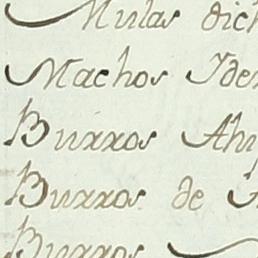 Mulas dich
Machos Yde
Burros Ah
Burros de
Burros